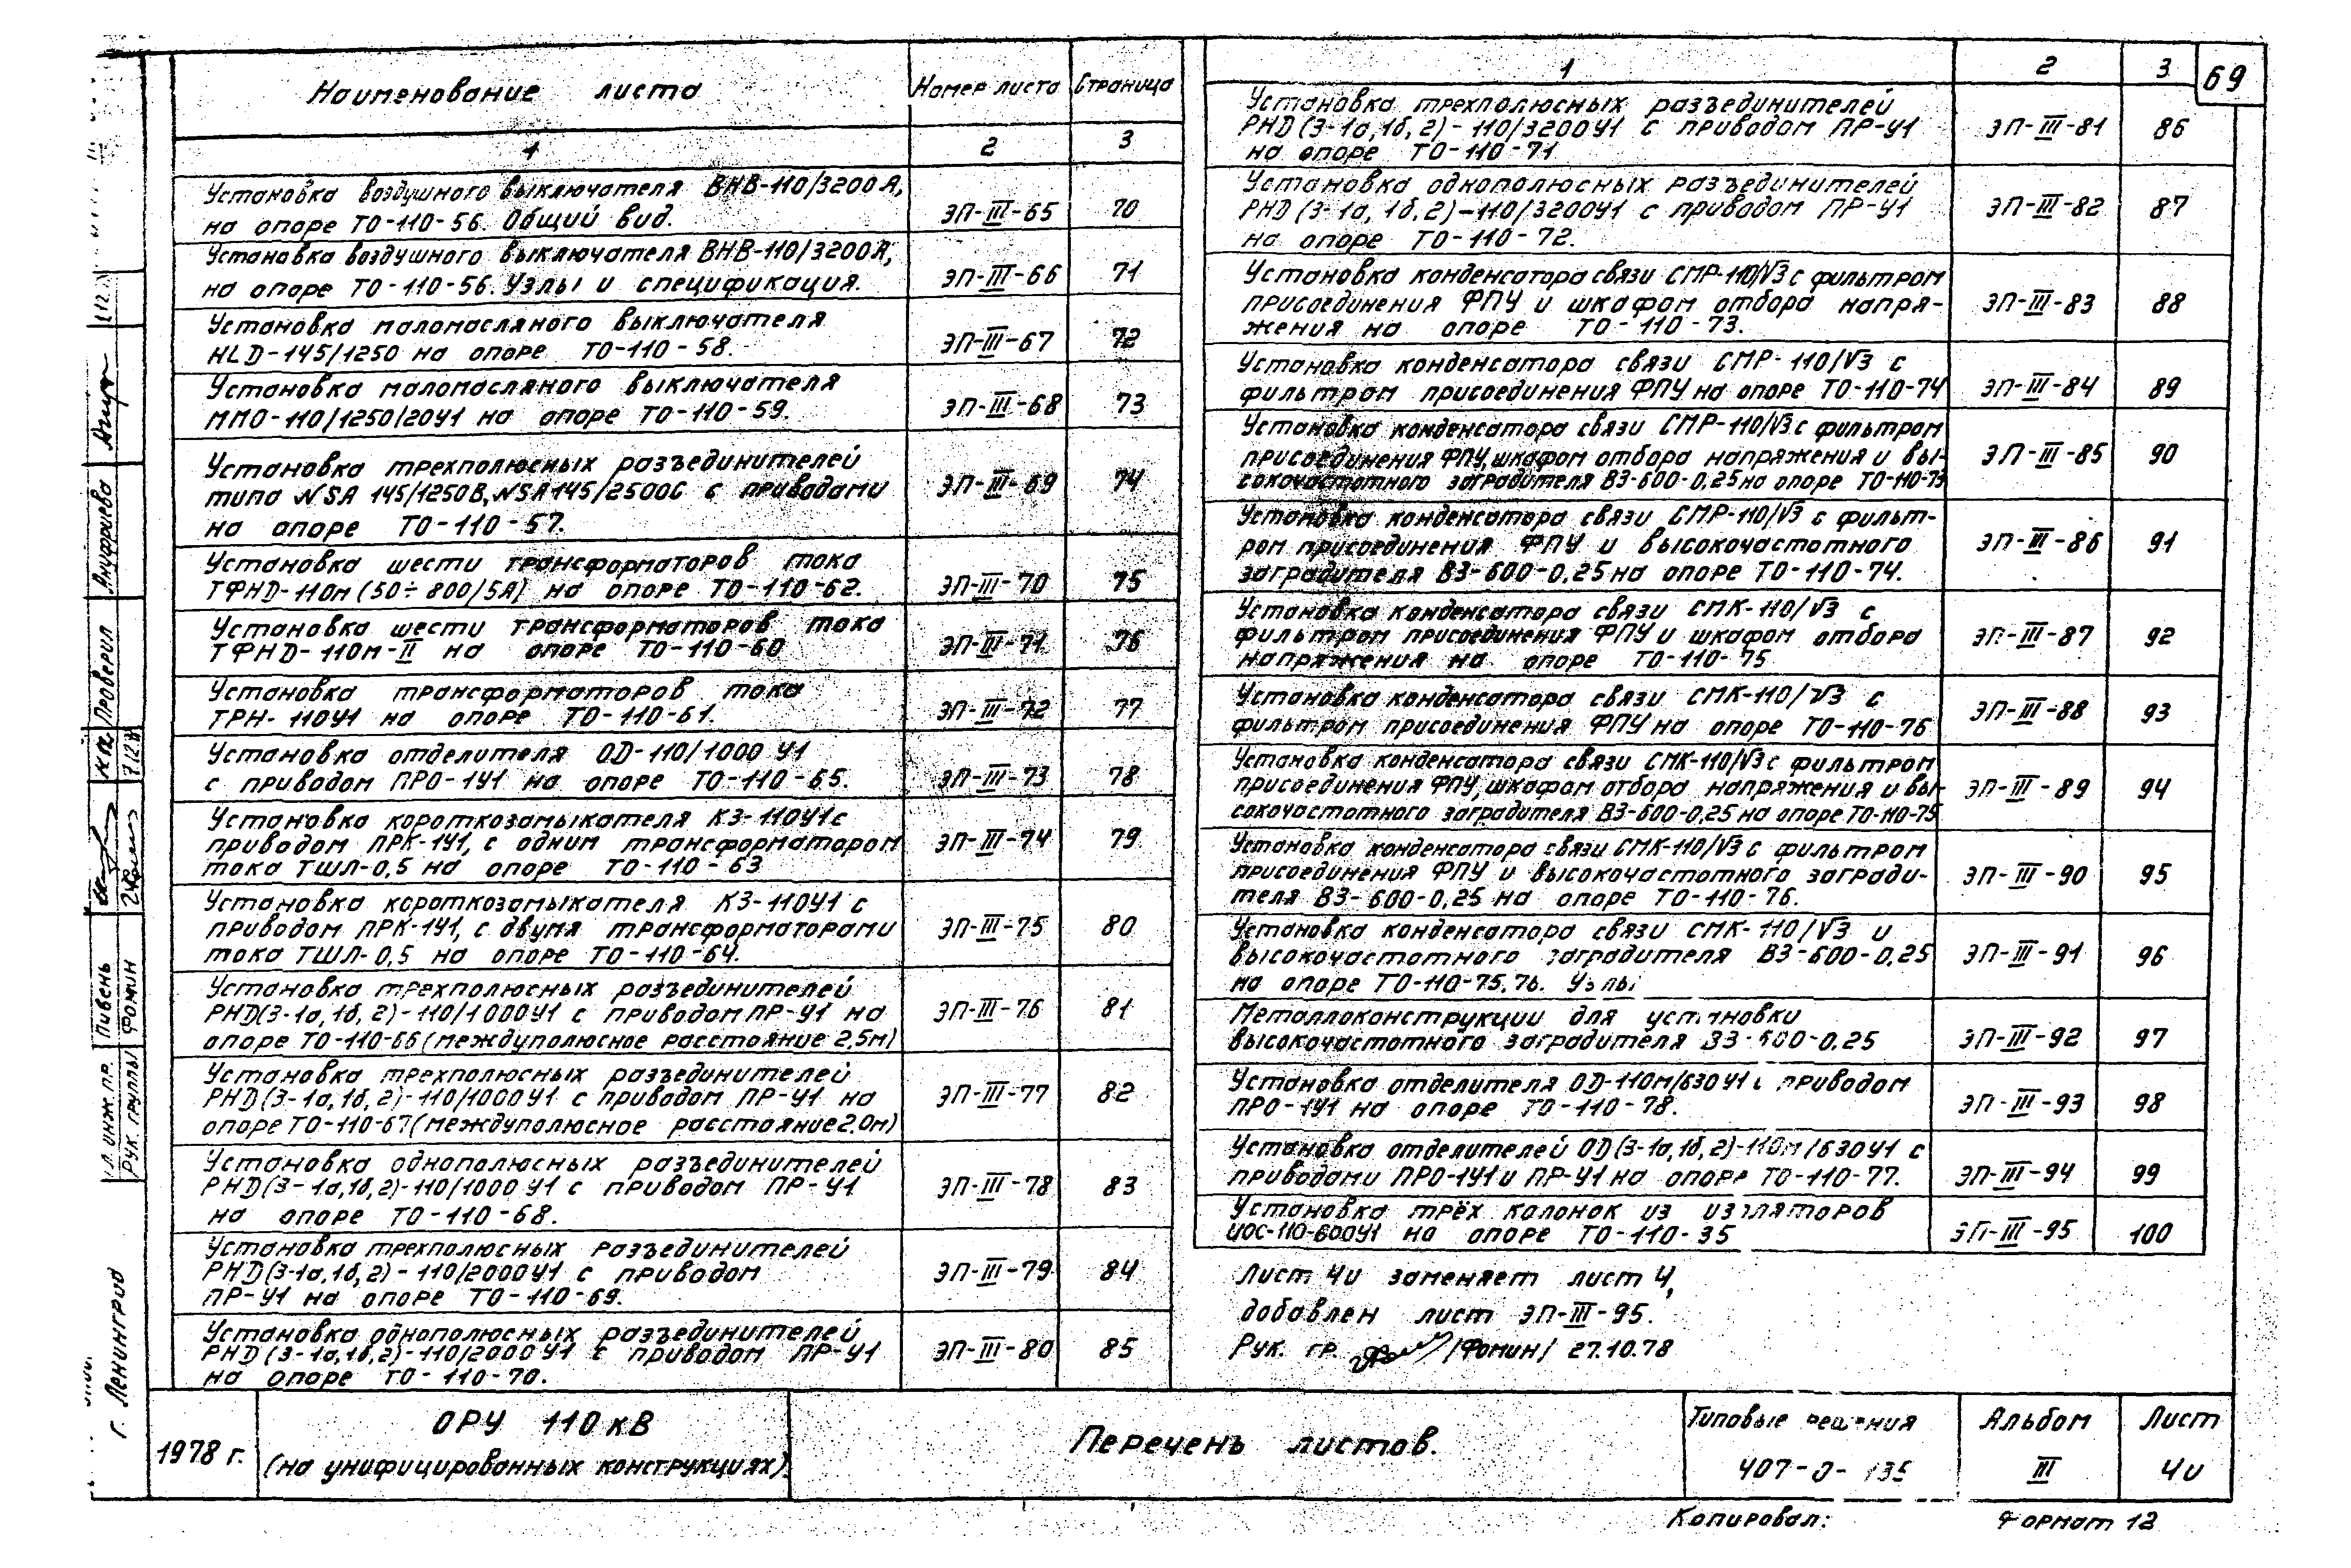 69
Наименование листа
Номер листа
Страница
1
2
3
Установка воздушного выключателя ВНВ-110/3200А,
на опоре ТО-110-56. Общий вид.
ЭП-III-65
70
Установка воздушного выключателя ВНВ-110/3200А,
на опоре ТО-110-56. Узлы и спецификация.
ЭП-III-66
71
Установка маломасляного выключателя
HLD-145/1250 на опоре ТО-110-58.
ЭП-III-67
72
Установка маломасляного выключателя
ММО-110/1250/20У1 на опоре ТО-110-59.
ЭП-III-68
73
Установка трехполюсных разъединителей
типа NSA 145/1250В, NSA145/2500С с приводами
на опоре ТО-110-57.
ЭП-III-69
74
Установка шести трансформаторов тока
ТФНД-110м (50÷800/5А) на опоре ТО-110-62.
ЭП-III-70
75
Установка шести трансформаторов тока
ТФНД-110м-II на опоре ТО-110-60
ЭП-III-71
76
Установка трансформаторов тока
ТРН-110У1 на опоре ТО-110-61.
ЭП-III-72
77
Установка отделителя ОД-110/1000 У1
с приводом ПРО-1У1 на опоре ТО-110-65.
ЭП-III-73
78
Установка короткозамыкателя КЗ-110У1 с
приводом ПРК-1У1, с одним трансформатором
тока ТШЛ-0,5 на опоре ТО-110-63
ЭП-III-74
79
Установка короткозамыкателя КЗ-110У1 с
приводом ПРК-1У1, с двумя трансформаторами
тока ТШЛ-0,5 на опоре ТО-110-64.
ЭП-III-75
80
Установка трехполюсных разъединителей
РНД(3-1а,1б,2)-110/1000У1 с приводом ПР-У1 на
опоре ТО-110-66 (междуполюсное расстояние 2,5м)
ЭП-III-76
81
Установка трехполюсных разъединителей
РНД(3-1а,1б,2)-110/1000У1 с приводом ПР-У1 на
опоре ТО-110-67 (междуполюсное расстояние 2.0м)
ЭП-III-77
82
Установка однополюсных разъединителей
РНД(3-1а,1б,2)-110/1000У1 с приводом ПР-У1
на опоре ТО-110-68.
ЭП-III-78
83
Установка трехполюсных разъединителей
РНД(3-1а,1б,2)-110/2000У1 с приводом
ПР-У1 на опоре ТО-110-69.
ЭП-III-79
84
Установка однополюсных разъединителей
РНД(3-1а,1б,2)-110/2000У1 с приводом ПР-У1
на опоре ТО-110-70.
ЭП-III-80
85
1
2
3
Установка трехполюсных разъединителей
РНД(3-1а,1б,2)-110/3200У1 с приводом ПР-У1
на опоре ТО-110-71
ЭП-III-81
86
Установка однополюсных разъединителей
РНД(3-1а,1б,2)-110/3200У1 с приводом ПР-У1
на опоре ТО-110-72.
ЭП-III-82
87
Установка конденсатора связи СМР-110/√3 с фильтром
присоединения ФПУ и шкафом отбора напря-
жения на опоре ТО-110-73.
ЭП-III-83
88
Установка конденсатора связи СМР-110/√3 с
фильтром присоединения ФПУ на опоре ТО-110-74
ЭП-III-84
89
Установка конденсатора связи СМР-110/√3 с фильтром
присоединения ФПУ, шкафом отбора напряжения и вы-
сокочастотного заградителя ВЗ-600-0,25 на опоре ТО-110-73
ЭП-III-85
90
Установка конденсатора связи СМР-110/√3 с фильт-
ром присоединения ФПУ и высокочастотного
заградителя ВЗ-600-0,25 на опоре ТО-110-74.
ЭП-III-86
91
Установка конденсатора связи СМК-110/√3 с
фильтром присоединения ФПУ и шкафом отбора
напряжения на опоре ТО-110-75
ЭП-III-87
92
Установка конденсатора связи СМК-110/√3 с
фильтром присоединения ФПУ на опоре ТО-110-76
ЭП-III-88
93
Установка конденсатора связи СМК-110/√3 с фильтром
присоединения ФПУ, шкафом отбора напряжения и вы-
сокочастотного заградителя ВЗ-600-0,25 на опоре ТО-110-75
ЭП-III-89
94
Установка конденсатора связи СМК-110/√3 с фильтром
присоединения ФПУ и высокочастотного загради-
теля ВЗ-600-0,25 на опоре ТО-110-76.
ЭП-III-90
95
Установка конденсатора связи СМК-110/√3 и
высокочастотного заградителя ВЗ-600-0,25
на опоре ТО-110-75,76. Узлы
ЭП-III-91
96
Металлоконструкции для установки
высокочастотного заградителя ВЗ-600-0,25
ЭП-III-92
97
Установка отделителя ОД-110м/630У1 с приводом
ПРО-1У1 на опоре ТО-110-78.
ЭП-III-93
98
Установка отделителей ОД(3-1а,1б,2)-110м/630У1 с
приводами ПРО-1У1 и ПР-У1 на опоре ТО-110-77.
ЭП-III-94
99
Установка трёх колонок из изоляторов
ЦОС-110-600У1 на опоре ТО-110-35
ЭП-III-95
100
Лист 4и заменяет лист 4,
добавлен лист ЭП-III-95.
Рук. гр. /Фомин/ 27.10.78
1978 г.
ОРУ 110 кВ
(на унифицированных конструкциях).
Перечень листов.
Типовые решения
407-0-135
Альбом
III
Лист
4и
Копировал:
Формат 12
Ануфриева
Проверил
Пивень
Фомин
Гл. инж. пр.
Рук. группы
г. Ленинград